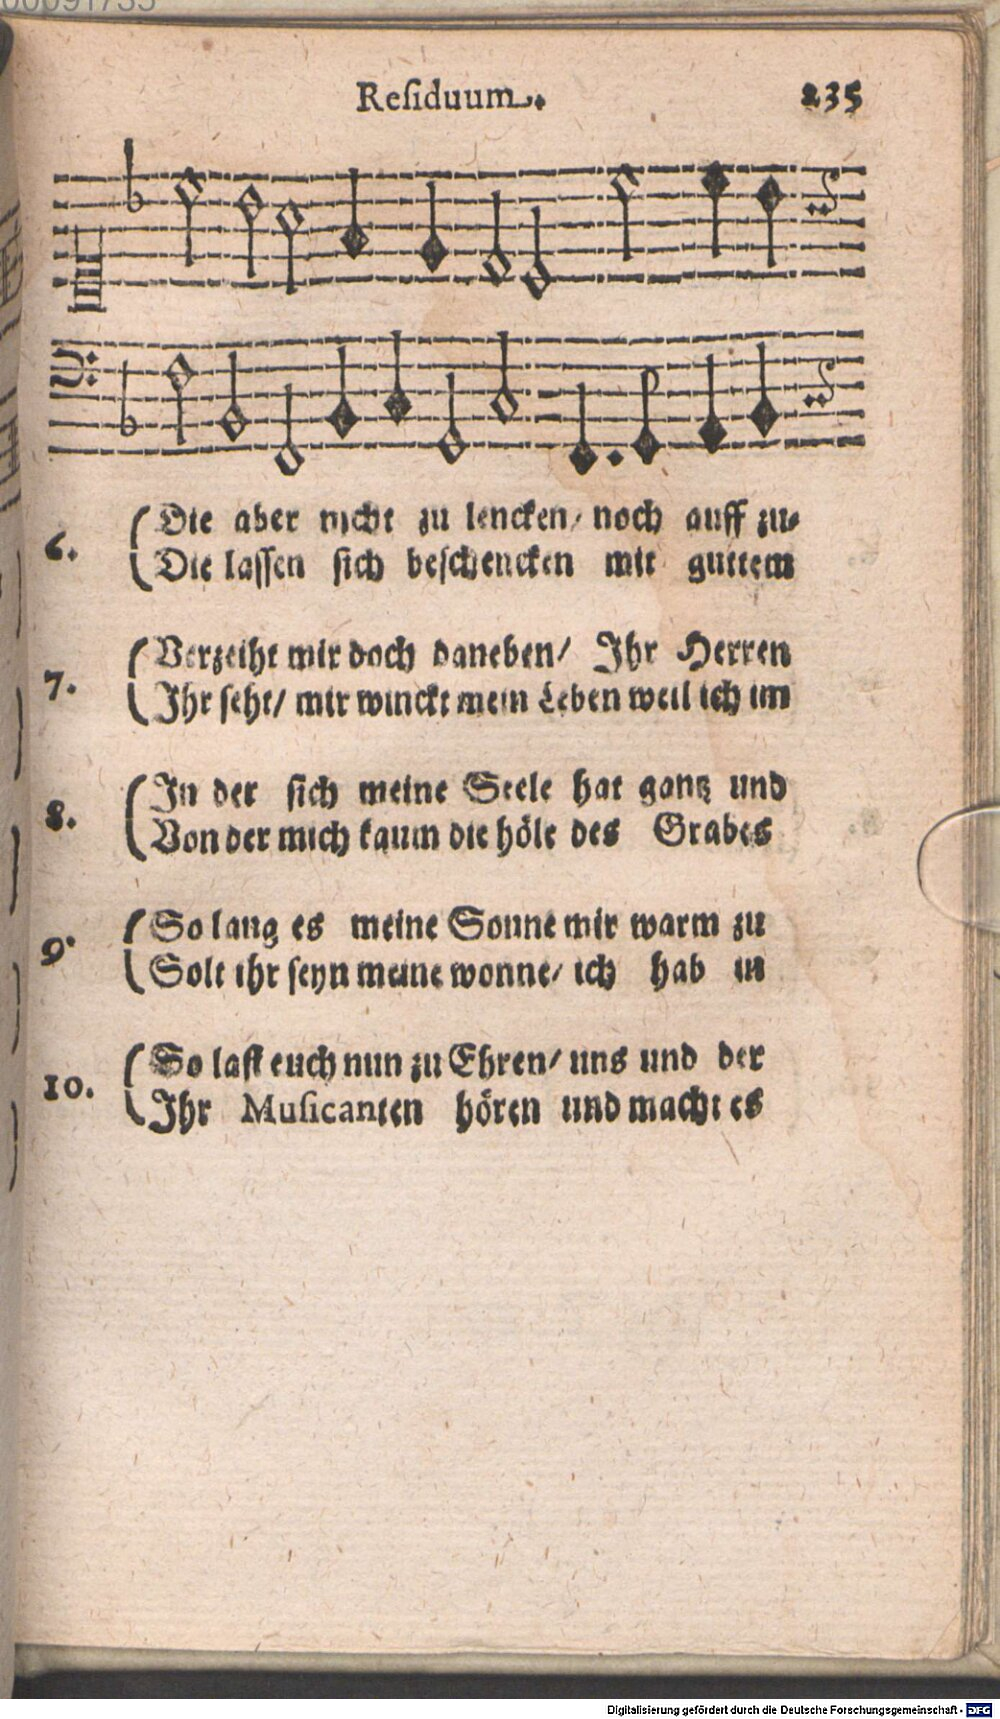 Reſiduum. 235
6. Die aber nicht zu lencken/ noch auff zu-
Die laſſen ſich beſchencken mit guttem
7. Verzeiht mir doch daneben/ Ihr Herren
Ihr ſeht/ mir winckt mein Leben weil ich im
8. In der ſich meine Seele hat gantz und
Von der mich kaum die höle des Grabes
9. So lang es meine Sonne mir warm zu
Solt ihr ſeyn meine wonne/ ich hab in
10. So laſſt euch nun zu Ehren/ uns und der
Ihr Muſicanten hören und macht es
Digitalisierung gefördert durch die Deutsche Forschungsgemeinschaft - DFG